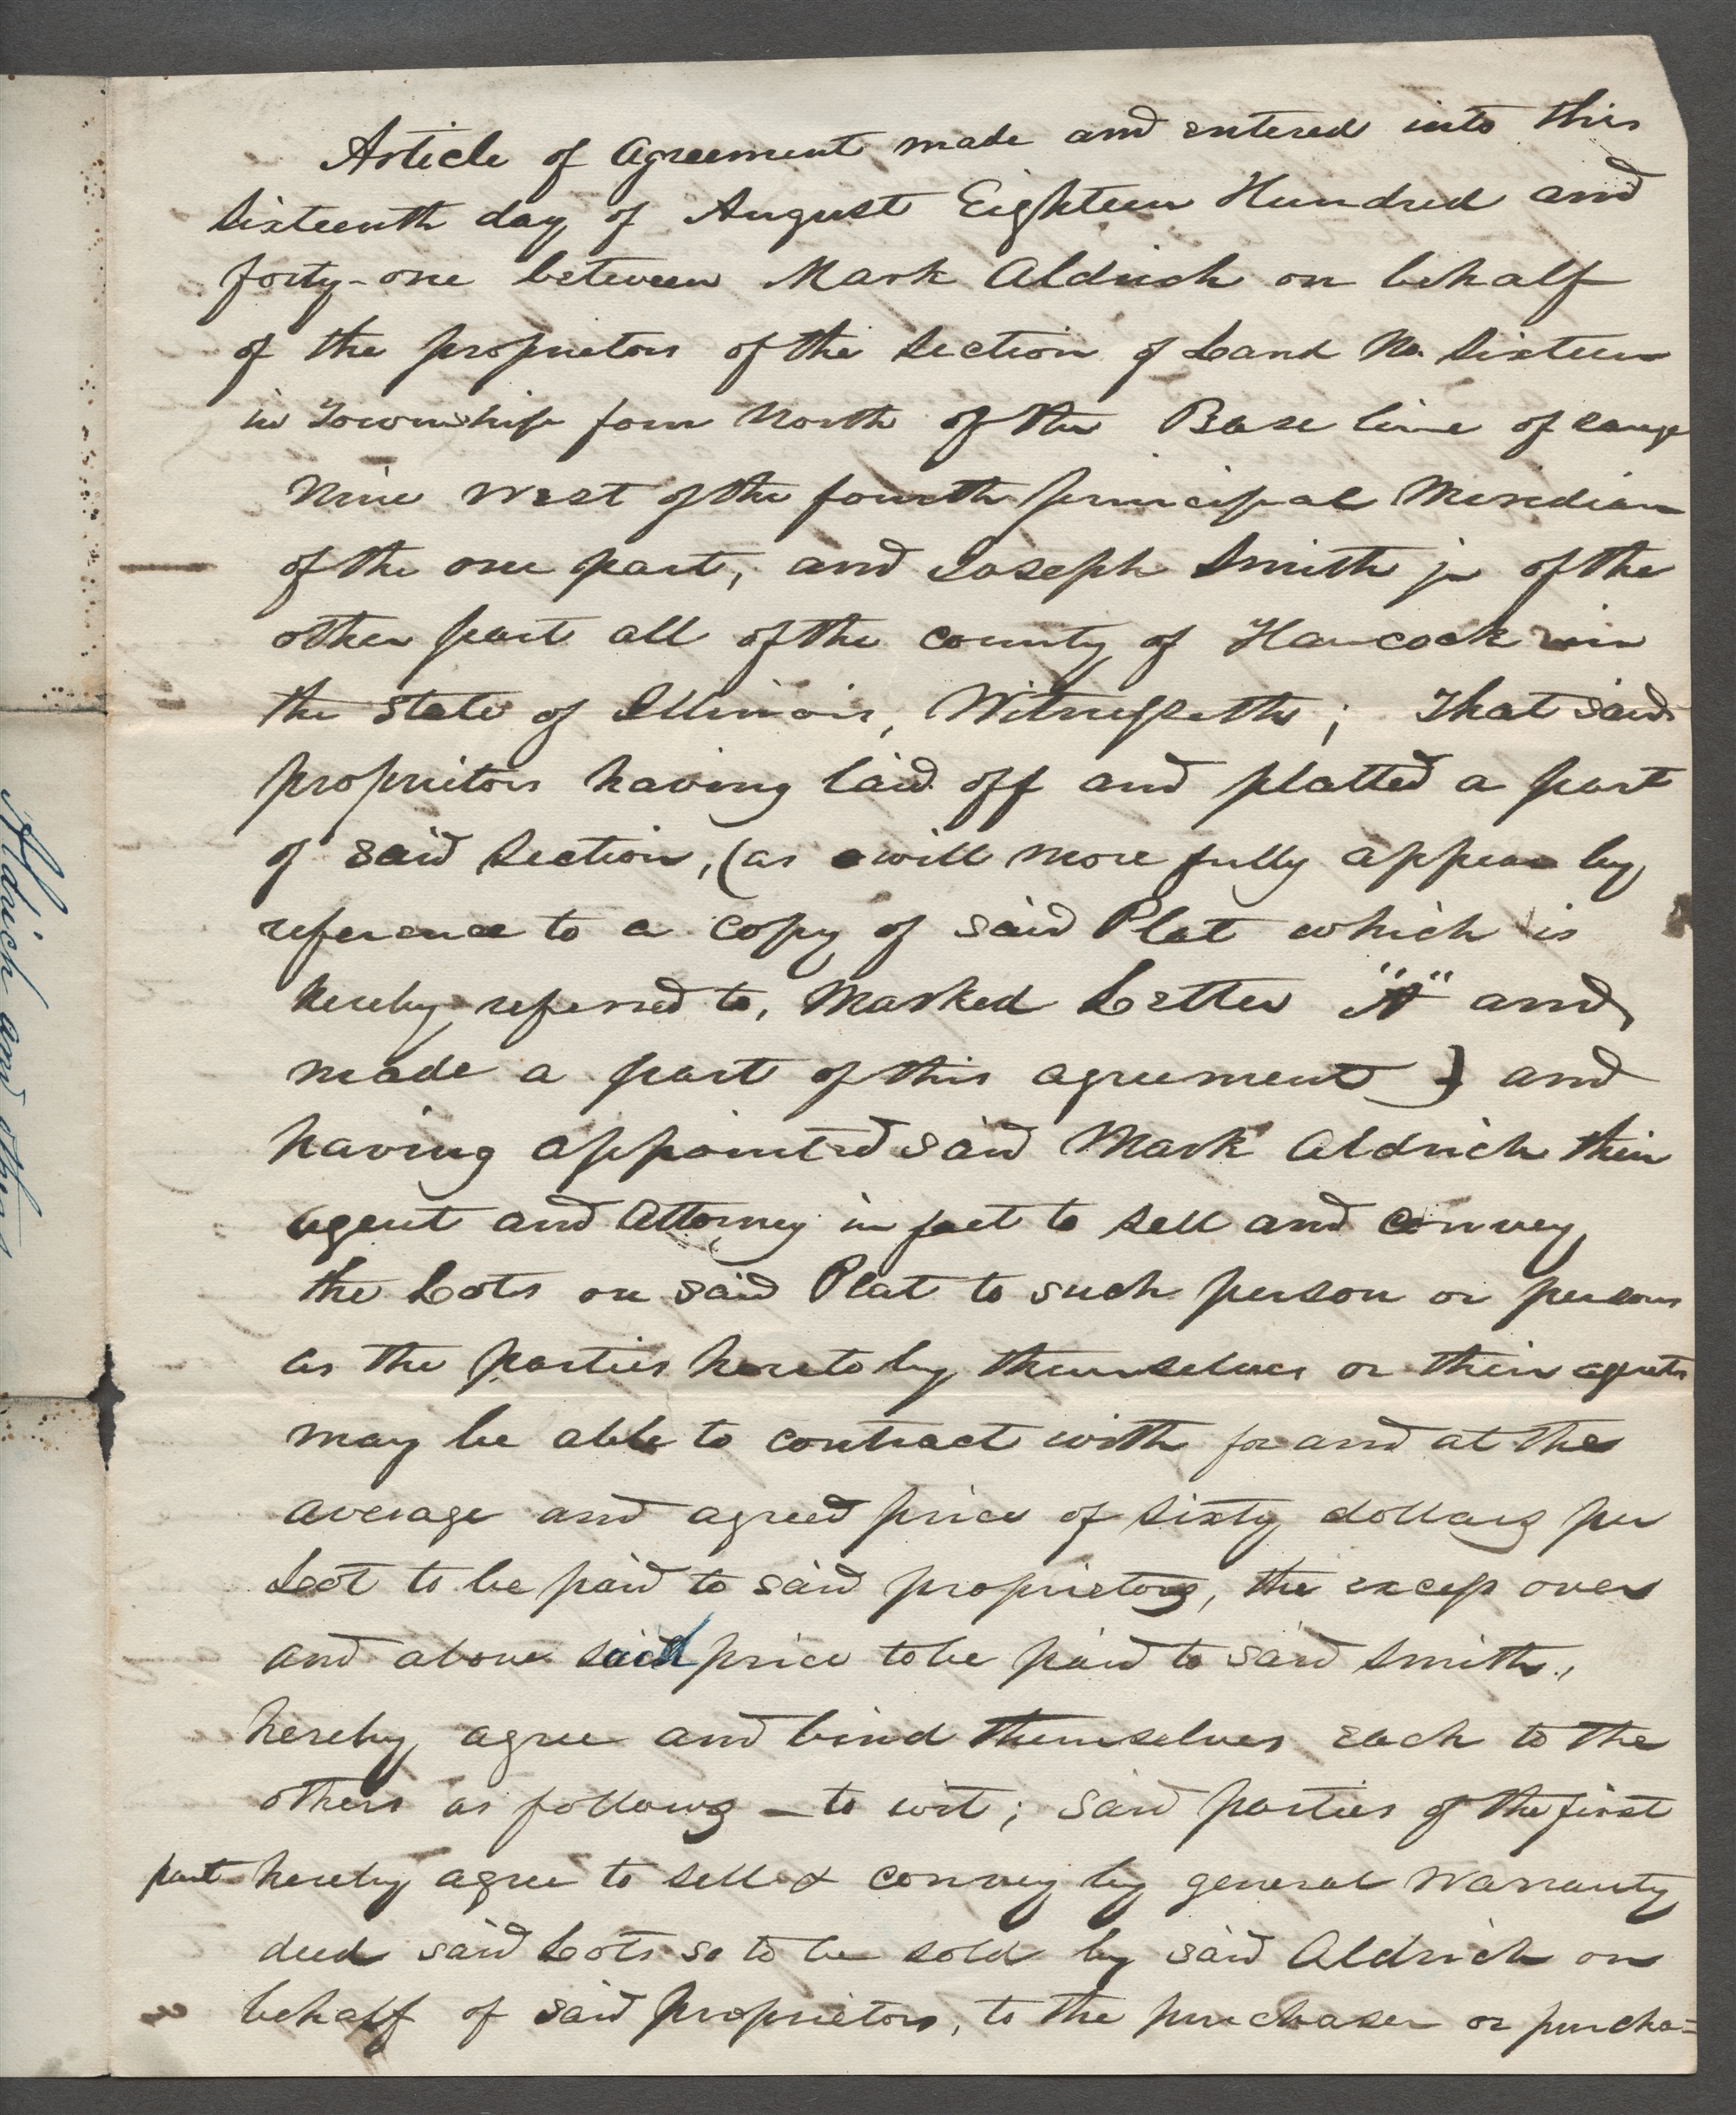 Article of Agreement made and entered into this
Sixteenth day of August Eighteen Hundred and
forty-one between Mark Aldrich on behalf
of the proprietors of the Section of Land No. Sixteen
in Township four North of the Base line of range
Nine West of the fourth principal Meridian
of the one part, and Joseph Smith jr of the
other part all of the county of Hancock in
the State of Illinois, Witnesseth; That said
proprietors having laid off and platted a part
of said Section, (as will more fully appear by
reference to a copy of said Plat which is
hereby referred to, Marked Letter "A" and
made a part of this agreement) and
having appointed said Mark Aldrich their
agent and Attorney in fact to sell and convey
the Lots on said Plat to such person or persons
as the parties hereto by themselves or their agents
may be able to contract with for and at the
average and agreed price of Sixty dollars per
Lot to be paid to said proprietors, the excess over
and above said price to be paid to said Smith,
hereby agree and bind themselves each to the
others as follows - to wit; said parties of the first
part hereby agree to sell & convey by general Warranty
deed said Lots so to be sold by said Aldrich on
behalf of said proprietors, to the purchaser or purcha=
Aldrich and others